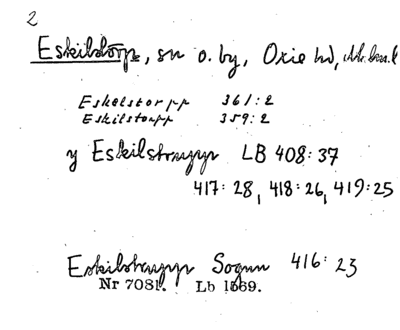 2
Eskilstorp, sn o. by, Oxie hd,
Eskelstorpp 361:2
Eskilstorpp 359:2
y Eskilstrupp LB 408:37
417:28, 418:26, 419:25
Eskilstrupp Sognn 416:23
Nr 7081. Lb 1569.